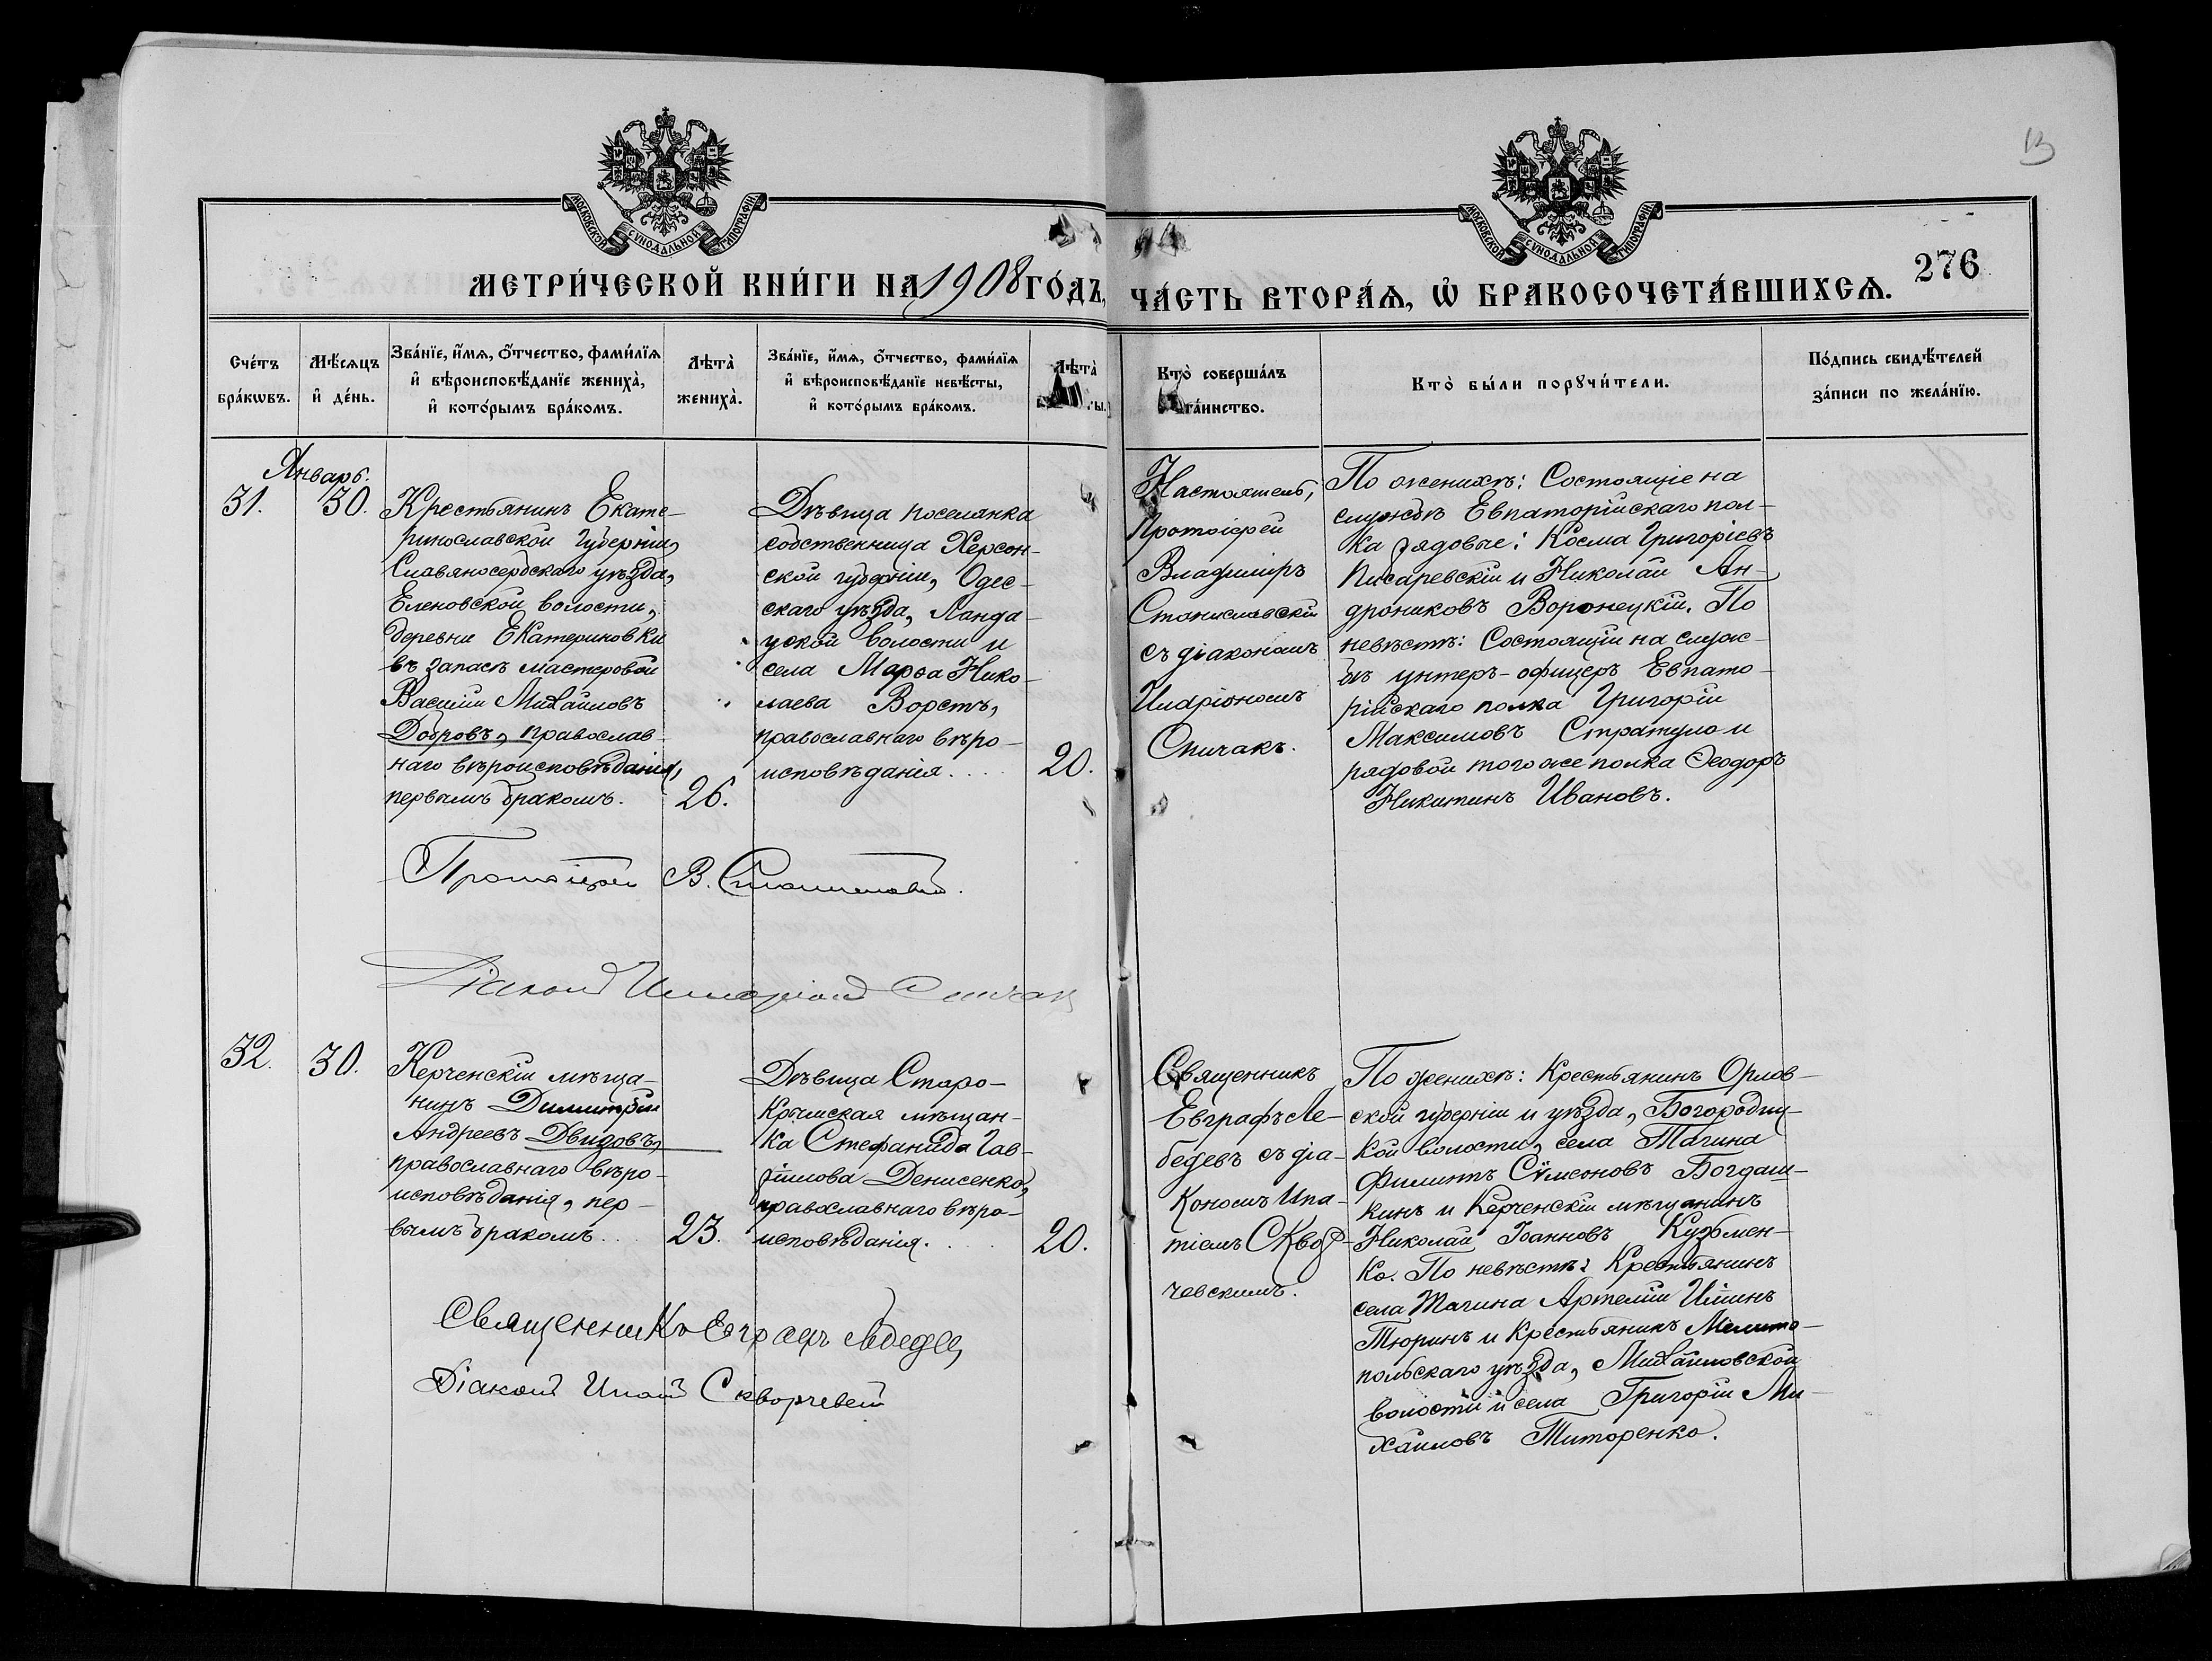 13
МОСКОВСКОЙ СУНОДАЛЬНОЙ ТИПОГРАФІИ
МОСКОВСКОЙ СУНОДАЛЬНОЙ ТИПОГРАФІИ
МЕТРИ́ЧЕСКОЙ КНИ́ГИ НА 1908 ГО́ДЪ,
ЧА́СТЬ ВТОРА́Ѧ, Ѽ БРАКОСОЧЕТА́ВШИХСѦ.
276
Сче́тъ
бра́кѡвъ.
Мѣ́сѧцъ
и҆ де́нь.
Зва́нїе, и҆́мѧ, ѻ҆́тчество, фами́лїѧ
и҆ вѣроисповѣ́данїе жениха̀,
и҆ кото́рымъ бра́комъ.
Лѣта̀
жениха̀.
Зва́нїе, и҆́мѧ, ѻ҆́тчество, фами́лїѧ
и҆ вѣроисповѣ́данїе невѣ́сты,
и҆ кото́рымъ бра́комъ.
Лѣта̀
Кто̀ соверша́лъ
та́инство.
Кто̀ бы́ли порꙋчи́тели.
По́дпись свидѣ́телей
за́писи по жела́нїю.
Январь.
31.
30.
Крестьянинъ Екате-
ринославской губерніи,
Славяносербскаго уѣзда,
Еленовской волости,
деревни Екатериновки
въ запасѣ мастеровой
Василій Михайловъ
Добровъ, православ-
наго вѣроисповѣданія,
первымъ бракомъ.
26.
Дѣвица поселянка
собственница Херсон-
ской губерніи, Одес-
скаго уѣзда, Ланда-
уской волости и
села Марѳа Нико-
лаева Ворстъ,
православнаго вѣро-
исповѣданія....
20.
Настоятель,
Протоіерей
Владиміръ
Станиславскій
съ діакономъ
Иларіономъ
Спичакъ.
По женихѣ: Состоящіе на
службѣ Евпаторійскаго пол-
ка рядовые: Косма Григоріевъ
Писаревскій и Николай Ан-
дрониковъ Воронецкій. По
невѣстѣ: Состоящій на служ-
бѣ унтеръ-офицеръ Евпато-
рійскаго полка Григорій
Максимовъ Стратуло и
рядовой того же полка Ѳеодоръ
Никитинъ Ивановъ.
Протоіерей В. Станиславскій.
Діаконъ Иларіонъ Спичакъ
32.
30.
Керченскій мѣща-
нинъ Димитрій
Андреевъ Двидовъ,
православнаго вѣро-
исповѣданія, пер-
вымъ бракомъ...
23.
Дѣвица Старо-
Крымская мѣщан-
ка Стефанида Гав-
ріилова Денисенко,
православнаго вѣро-
исповѣданія....
20.
Священникъ
Евграфъ Ле-
бедевъ съ діа-
кономъ Ипа-
тіемъ Сквор-
чевскимъ.
По женихѣ: Крестьянинъ Орлов-
ской губерніи и уѣзда, Богородиц-
кой волости, села Тагина
Филиппъ Сѵмеоновъ Богдаш-
кинъ и Керченскій мѣщанинъ
Николай Іоанновъ Кузьмен-
ко. По невѣстѣ: Крестьянинъ
села Тагина Артемій Ильинъ
Тюринъ и крестьянинъ Мелито-
польскаго уѣзда, Михайловской
волости и села Григорій Ми-
хайловъ Титоренко.
Священникъ Евграфъ Лебедевъ
Діаконъ Ипатій Скворчевскій